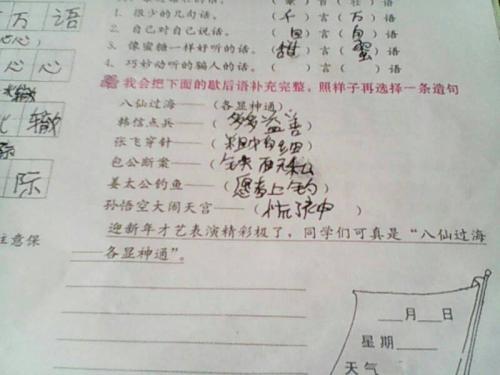 万 语
1. 很少的几句话。 （千）言（万）语
2. 自己对自己说话。 （自）言（自）语
3. 像蜜糖一样好听的话。 （甜）言（蜜）语
4. 巧妙动听的骗人的话。 （ ）言（ ）语
心 心
我会把下面的歇后语补充完整，照样子再选择一条造句
辙
八仙过海——（各显神通）
韩信点兵——（多多益善）
张飞穿针——（粗中有细）
包公断案——（铁面无私）
际
姜太公钓鱼——（愿者上钓）
孙悟空大闹天宫——（慌了天中）
迎新年才艺表演精彩极了，同学们可真是“八仙过海
注意保
——各显神通”。
___月___日
星期
天气